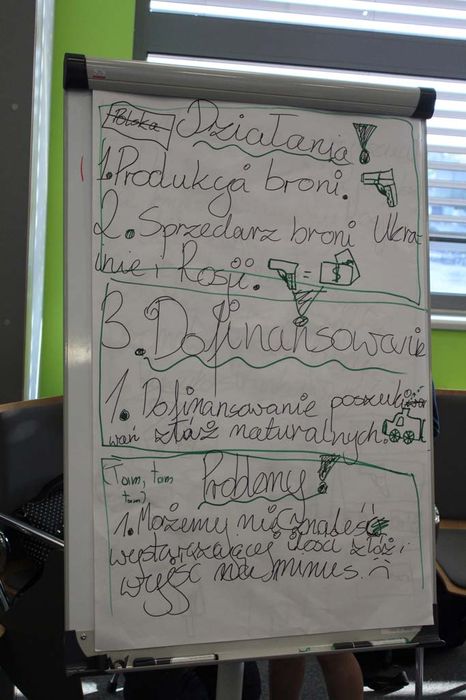 Polska
Działania!
1. Produkcja broni.
2. Sprzedarz broni Ukra-
inie i Rosji. = $
3. Dofinansowanie
1. Dofinansowanie poszuki
wań złóż naturalnych.
(Tam, tam
tam)
Problemy!
1. Możemy nie znaleść
wystarczającej ilości złóż i
wyjść na minus. :(